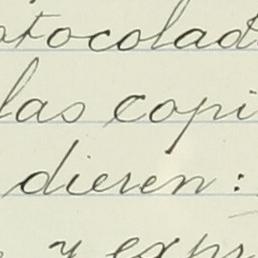 otocolad
las copi
dieren:
y expr